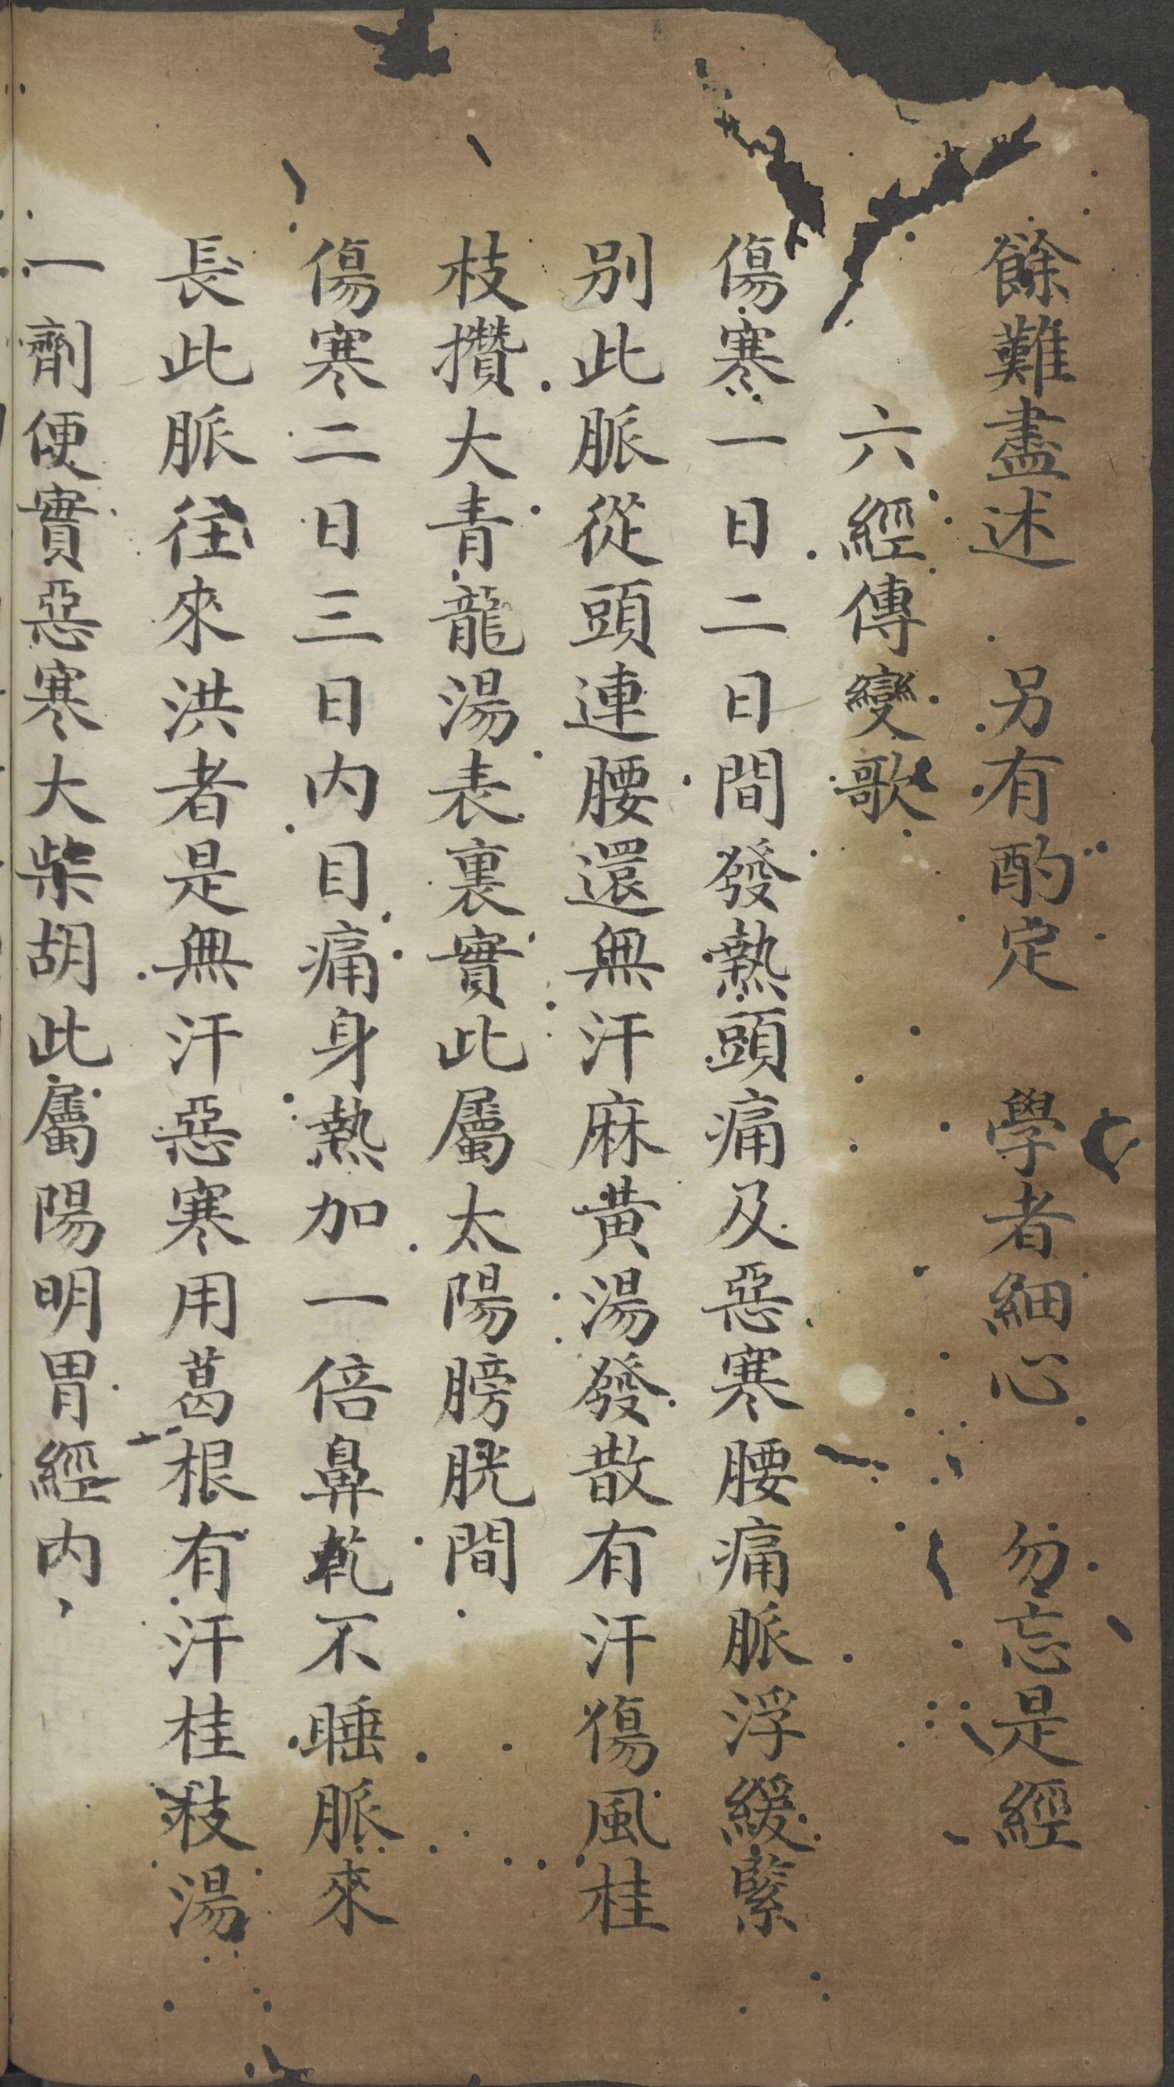 餘難盡述　另有酌定　學者細心　勿忘是經
六經傳變歌
傷寒一日二日間發熱頭痛及惡寒腰痛脈浮緩緊
別此脈從頭連腰還無汗麻黃湯發散有汗傷風桂
枝攢大青龍湯表裏實此屬太陽膀胱間
傷寒二日三日內目痛身熱加一倍鼻乾不睡脈來
長此脈往來洪者是無汗惡寒用葛根有汗桂枝湯
一劑便實惡寒大柴胡此屬陽明胃經內